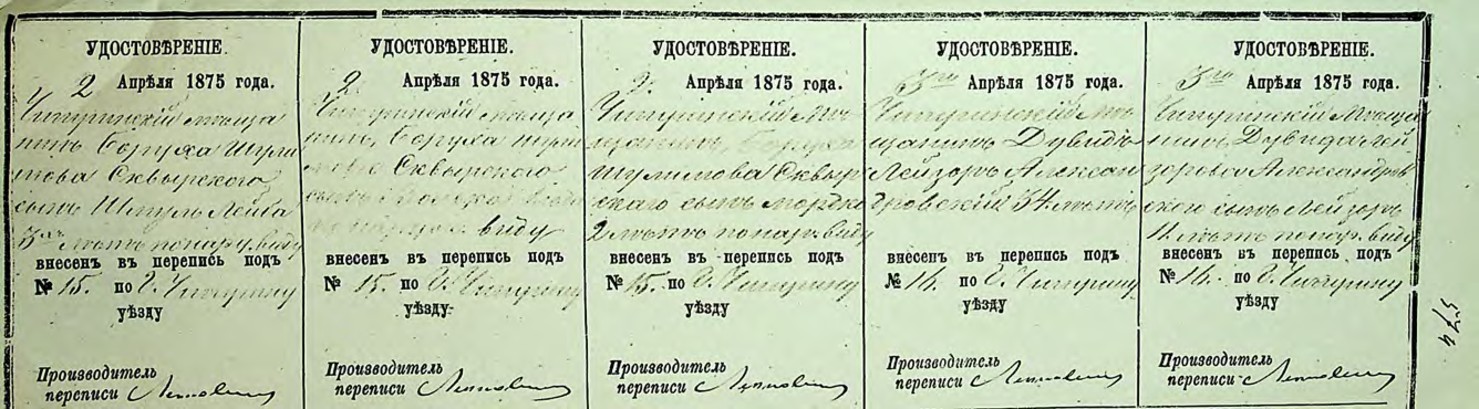 УДОСТОВѢРЕНІЕ.
2 Апрѣля 1875 года.
Чигиринскій мѣща
нинъ Боруха Шули
мова Сквырского
сынъ Шмуль Лейба
3хъ лѣтъ по наруж. виду
внесенъ въ перепись подъ
№ 15. по г. Чигирину
уѣзду
Производитель
переписи
УДОСТОВѢРЕНІЕ.
2. Апрѣля 1875 года.
Чигиринскій мѣща
нинъ, Боруха Шули
мова Сквырского
сынъ
виду
внесенъ въ перепись подъ
№ 15. по г. Чигирину
уѣзду
Производитель
переписи
УДОСТОВѢРЕНІЕ.
2. Апрѣля 1875 года.
Чигиринскій мѣ
щанинъ, Боруха
Шулимова Сквыр
скаго сынъ Мордко
2 лѣтъ по нар. виду
внесенъ въ перепись подъ
№ 15. по г. Чигирину
уѣзду
Производитель
переписи
УДОСТОВѢРЕНІЕ.
3го Апрѣля 1875 года.
Чигиринскій мѣ
щанинъ Дувидъ
Лейзоръ Алексан
дровскій 34 лѣтъ
внесенъ въ перепись подъ
№ 14. по г. Чигирину
уѣзду
Производитель
переписи
УДОСТОВѢРЕНІЕ.
3го Апрѣля 1875 года.
Чигиринскій мѣща
нинъ, Дувида Лей
зорова Александров
ского сынъ Лейзоръ
11 лѣтъ по нар. виду
внесенъ въ перепись подъ
№ 14. по г. Чигирину
уѣзду
Производитель
переписи
574